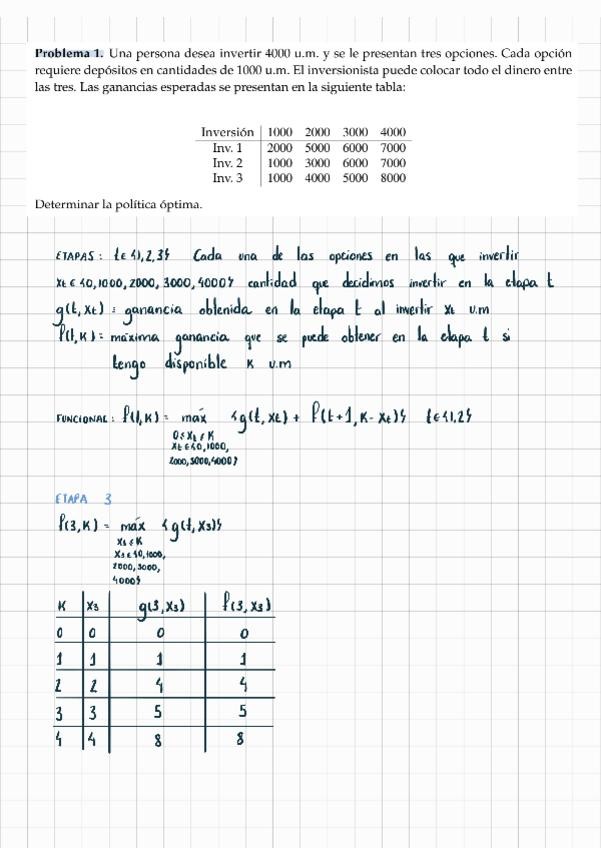 Problema 1. Una persona desea invertir 4000 u.m. y se le presentan tres opciones. Cada opción
requiere depósitos en cantidades de 1000 u.m. El inversionista puede colocar todo el dinero entre
las tres. Las ganancias esperadas se presentan en la siguiente tabla:
Inversión 1000 2000 3000 4000
Inv. 1 2000 5000 6000 7000
Inv. 2 1000 3000 6000 7000
Inv. 3 1000 4000 5000 8000
Determinar la política óptima.
ETAPAS: t∈{1,2,3} Cada una de las opciones en las que invertir
xt ∈ {0,1000,2000,3000,4000} cantidad que decidimos invertir en la etapa t
g(t,xt): ganancia obtenida en la etapa t al invertir xt u.m
f(t,K): máxima ganancia que se puede obtener en la etapa t si
tengo disponible K u.m
FUNCIONAL: f(t,K) = máx {g(t,xt) + f(t+1,K-xt)} t∈{1,2}
0≤xt≤K
xt∈{0,1000,
2000,3000,4000}
ETAPA 3
f(3,K) = máx {g(t,x3)}
x3≤K
x3∈{0,1000,
2000,3000,
4000}
K x3 g(3,x3) f(3,x3)
0 0 0 0
1 1 1 1
2 2 4 4
3 3 5 5
4 4 8 8